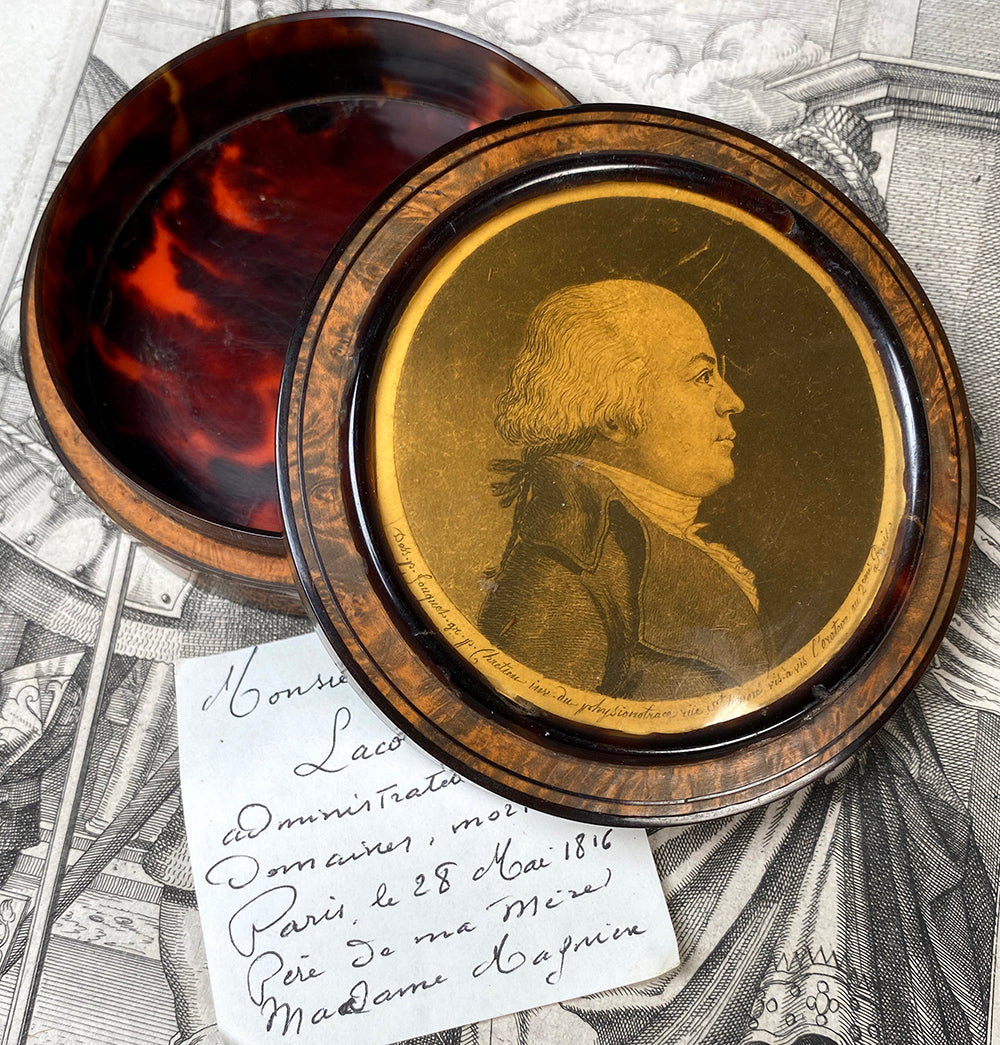 Dess. p. Fouquet. gr. p. Chretien inv. du physionotrace rue St honoré vis-à-vis l'oratoire
Monsie
Laco
administrate
Domaines, mor
Paris, le 28 Mai 1816
Père de ma Mère
Madame Magnien